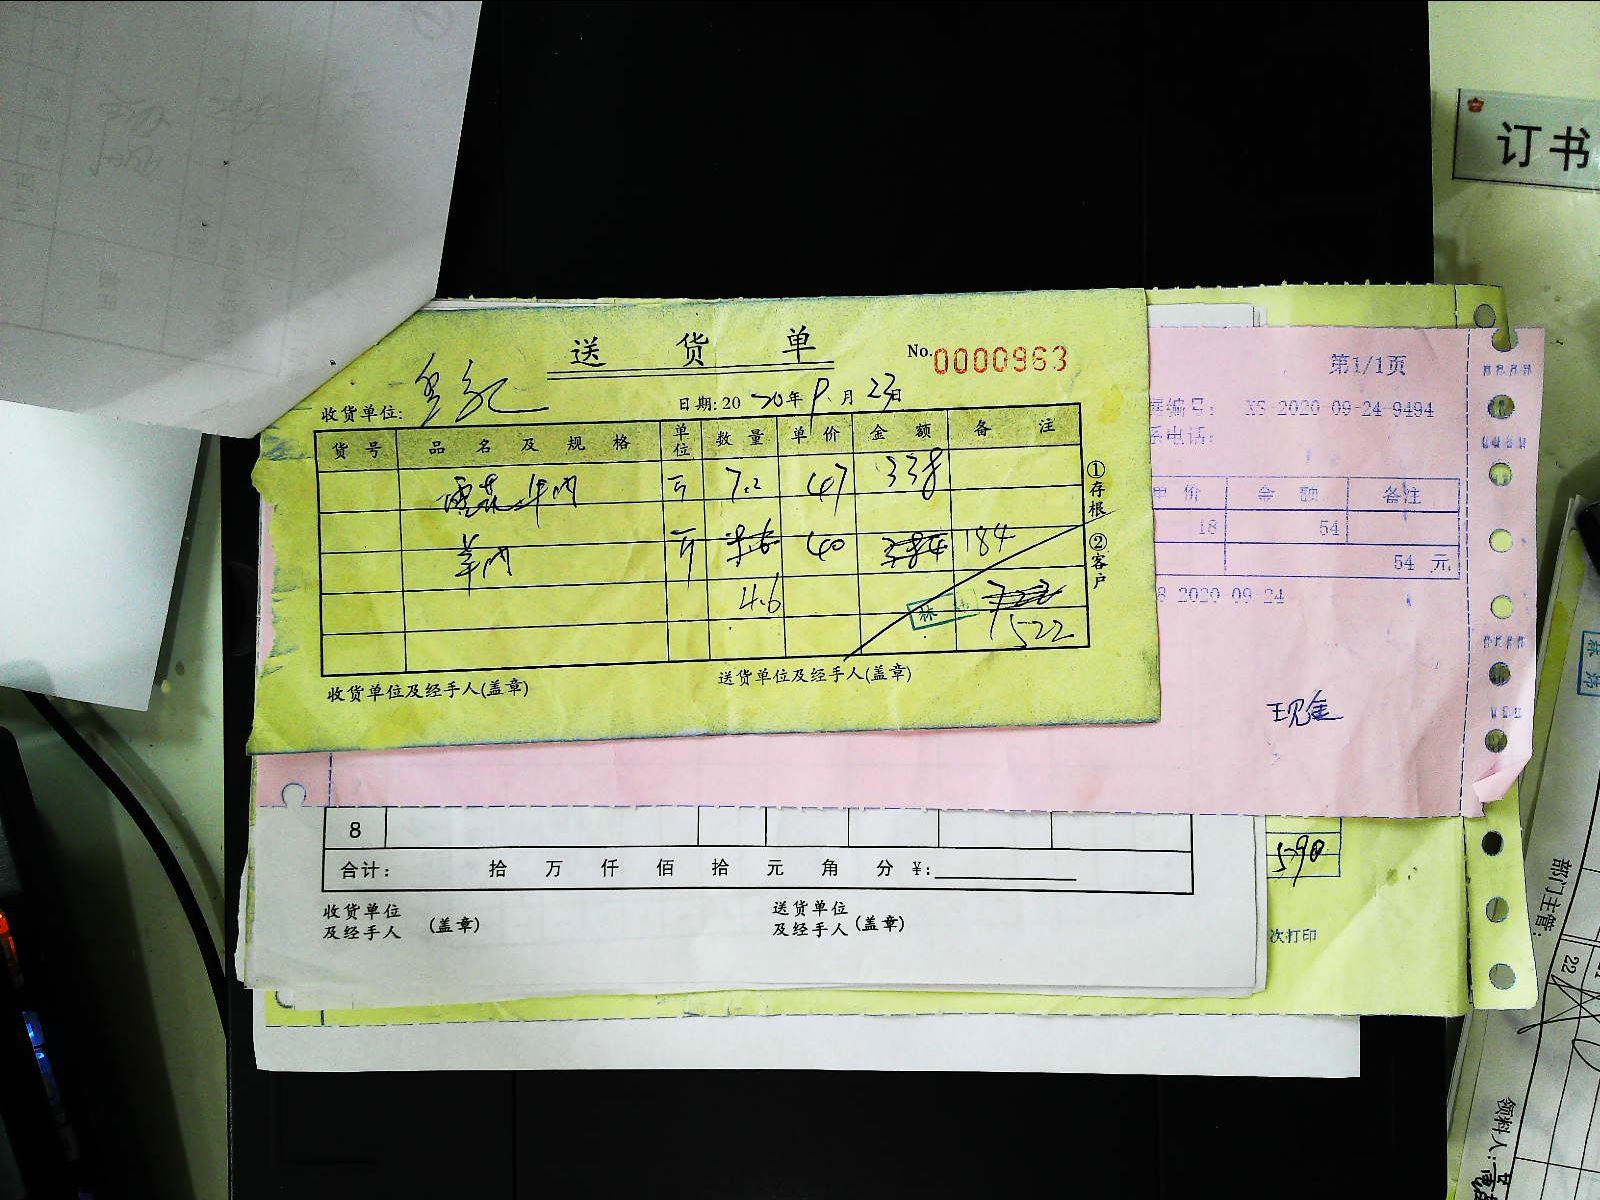 送货单 No.0000963
收货单位: 日期: 2020年9月23日
货号 品名及规格 单位 数量 单价 金额 备注
雪花牛肉 斤 7.2 47 338
羊肉 斤 40 384 184
4.6
522
收货单位及经手人(盖章) 送货单位及经手人(盖章)
①存根 ②客户
第1/1页
编号: XS 2020 09-24-9494
系电话:
单价 金额 备注
18 54
54 元
8 2020 09-24
现金
8
合计: 拾 万 仟 佰 拾 元 角 分 ¥:
收货单位及经手人 (盖章) 送货单位及经手人 (盖章)
590
次打印
订书
部门主管:
22
领料人: